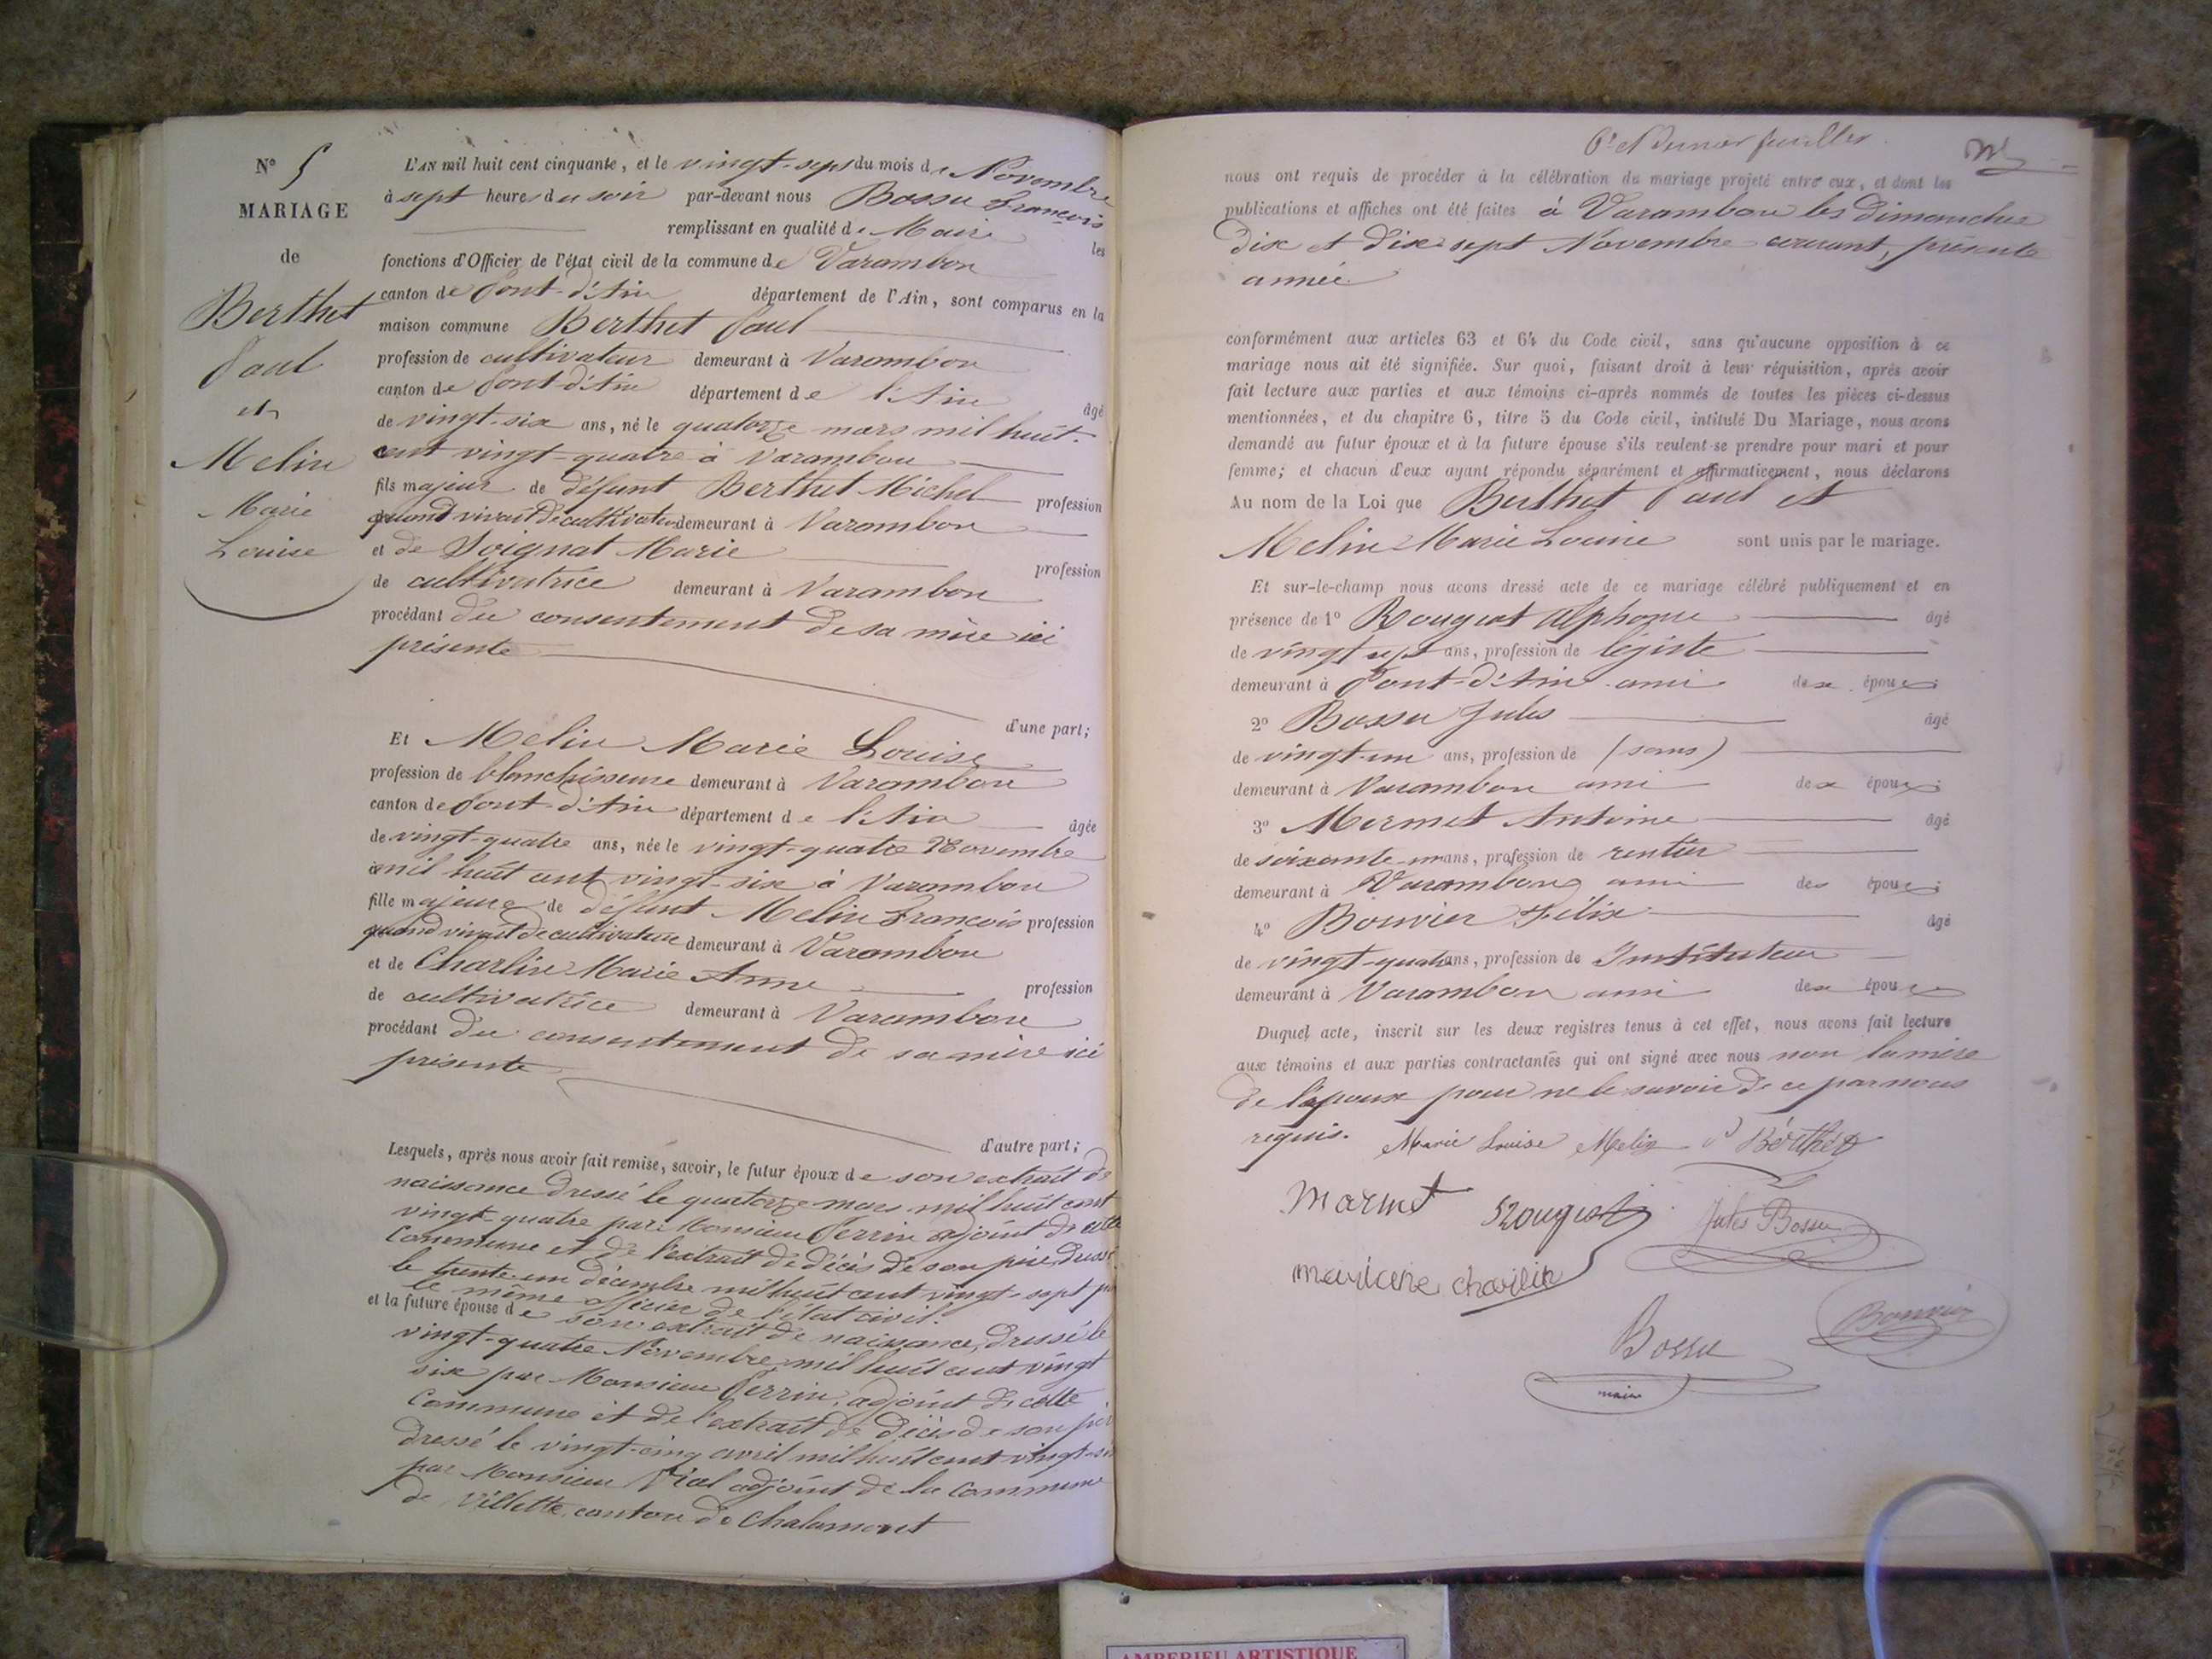 N° 5
MARIAGE
de
Berthet
Paul
et
Melin
Marie
Louise
L'AN mil huit cent cinquante, et le vingt-sept du mois de Novembre
à sept heures du soir par-devant nous Bossu François
remplissant en qualité de Maire les
fonctions d'Officier de l'état civil de la commune de Varambon
canton de Pont-d'Ain département de l'Ain, sont comparus en la
maison commune Berthet Paul
profession de cultivateur demeurant à Varambon
canton de Pont-d'Ain département de l'Ain âgé
de vingt-six ans, né le quatorze mars mil huit-
cent vingt-quatre à Varambon
fils majeur de défunt Berthet Michel profession
quand vivait de cultivateur demeurant à Varambon
et de Soignat Marie profession
de cultivatrice demeurant à Varambon
procédant du consentement de sa mère ici
présente
d'une part;
Et Melin Marie Louise
profession de blanchisseuse demeurant à Varambon
canton de Pont-d'Ain département de l'Ain âgée
de vingt-quatre ans, née le vingt-quatre Novembre
mil huit cent vingt-six à Varambon
fille majeure de défunt Melin François profession
quand vivait de cultivateur demeurant à Varambon
et de Charlin Marie Anne profession
de cultivatrice demeurant à Varambon
procédant du consentement de sa mère ici
présente
d'autre part;
Lesquels, après nous avoir fait remise, savoir, le futur époux de son extrait de
naissance dressé le quatorze mars mil huit cent
vingt-quatre par Monsieur Perrin adjoint de cette
Commune et de l'extrait de décès de son père, dressé
le trente-un décembre mil huit cent vingt-sept par
le même officier de l'état civil.
et la future épouse de son extrait de naissance, dressé le
vingt-quatre Novembre mil huit cent vingt
six par Monsieur Perrin, adjoint de cette
Commune et de l'extrait de décès de son père
dressé le vingt-cinq avril mil huit cent vingt-six
par Monsieur Vial adjoint de la Commune
de Villette, canton de Chalamont
6e et dernier feuillet
nous ont requis de procéder à la célébration du mariage projeté entre eux, et dont les
publications et affiches ont été faites à Varambon les Dimanches
dix et dix-sept Novembre courant, présente
année
conformément aux articles 63 et 64 du Code civil, sans qu'aucune opposition à ce
mariage nous ait été signifiée. Sur quoi, faisant droit à leur réquisition, après avoir
fait lecture aux parties et aux témoins ci-après nommés de toutes les pièces ci-dessus
mentionnées, et du chapitre 6, titre 5 du Code civil, intitulé Du Mariage, nous avons
demandé au futur époux et à la future épouse s'ils veulent se prendre pour mari et pour
femme; et chacun d'eux ayant répondu séparément et affirmativement, nous déclarons
Au nom de la Loi que Berthet Paul et
Melin Marie Louise sont unis par le mariage.
Et sur-le-champ nous avons dressé acte de ce mariage célébré publiquement et en
présence de 1° Rougeot Alphonse âgé
de vingt sept ans, profession de légiste
demeurant à Pont-d'Ain ami des époux;
2° Bossu Jules âgé
de vingt-un ans, profession de (sans)
demeurant à Varambon ami des époux;
3° Mermet Antoine âgé
de soixante-un ans, profession de rentier
demeurant à Varambon ami des époux;
4° Bouvier Félix âgé
de vingt-quatre ans, profession de Instituteur
demeurant à Varambon ami des époux
Duquel acte, inscrit sur les deux registres tenus à cet effet, nous avons fait lecture
aux témoins et aux parties contractantes qui ont signé avec nous non la mère
de l'époux pour ne le savoir de ce par nous
requis. Marie Louise Melin P Berthet
Mermet Rougeot Jules Bossu
mariane charlin
Bossu Bouvier
maire
AMBERIEU ARTISTIQUE